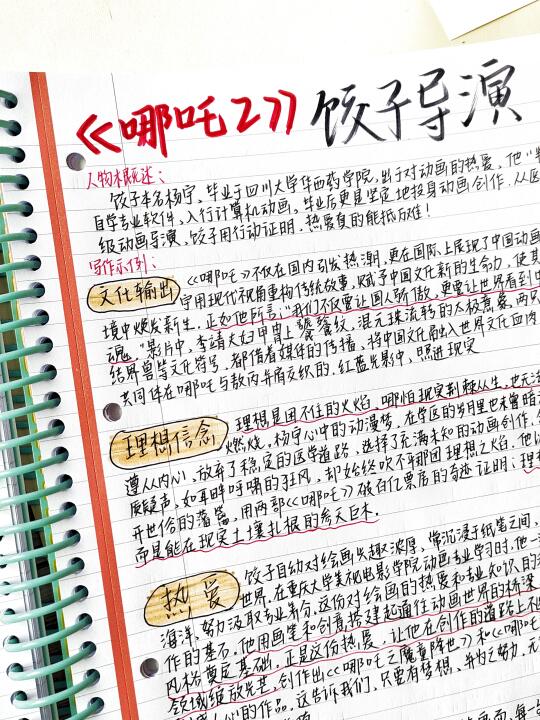 《哪吒2》饺子导演
人物概述：
饺子本名杨宇，毕业于四川大学华西药学院，出于对动画的热爱，他
自学专业软件，入行计算机动画，毕业后更是坚定地投身动画创作，从医
级动画导演，饺子用行动证明，热爱真的能抵万难！
写作示例：
文化输出 《哪吒》不仅在国内引发热潮，更在国际上展现了中国动画
守用现代视角重构传统故事，赋予中国文化新的生命力，使其
境中焕发新生，正如他所言："我们不仅要让国人骄傲，更要让世界看到中
魂。"影片中，李靖夫妇甲胄上饕餮纹，混元珠流转的太极意象，两只
结界兽等文化符号，都借着媒体的传播，将中国文化融入世界文化血肉
共同体在哪吒与敖丙并肩交织的，红蓝光影中，照进现实
理想信念 理想是困不住的火焰，哪怕现实荆棘丛生，也无法
燃烧，杨宇心中的动漫梦，在学医的岁月里也未曾暗
遵从内心，放弃了稳定的医学道路，选择了充满未知的动画创作，
质疑声，如耳畔呼啸的狂风，却始终吹不灭那团理想之火焰，他以
开世俗的藩篱，用两部《哪吒》破百亿票房的奇迹证明：理想
而是能在现实土壤扎根的参天巨木。
热爱 饺子自幼对绘画兴趣浓厚，常沉浸于纸笔之间，
世界，在重庆大学美视电影学院动画专业学习时，他一
海洋，努力汲取专业养分，这份对绘画的热爱和专业知识的
作的基石，他用画笔和创意，搭建起通往动画世界的桥梁，
风格奠定基础，正是这份热爱，让他在创作的道路上不
领域绽放光芒，创作出《哪吒之魔童降世》和《哪吒
人心的作品，这告诉我们，只要有梦想，并为之努力，无